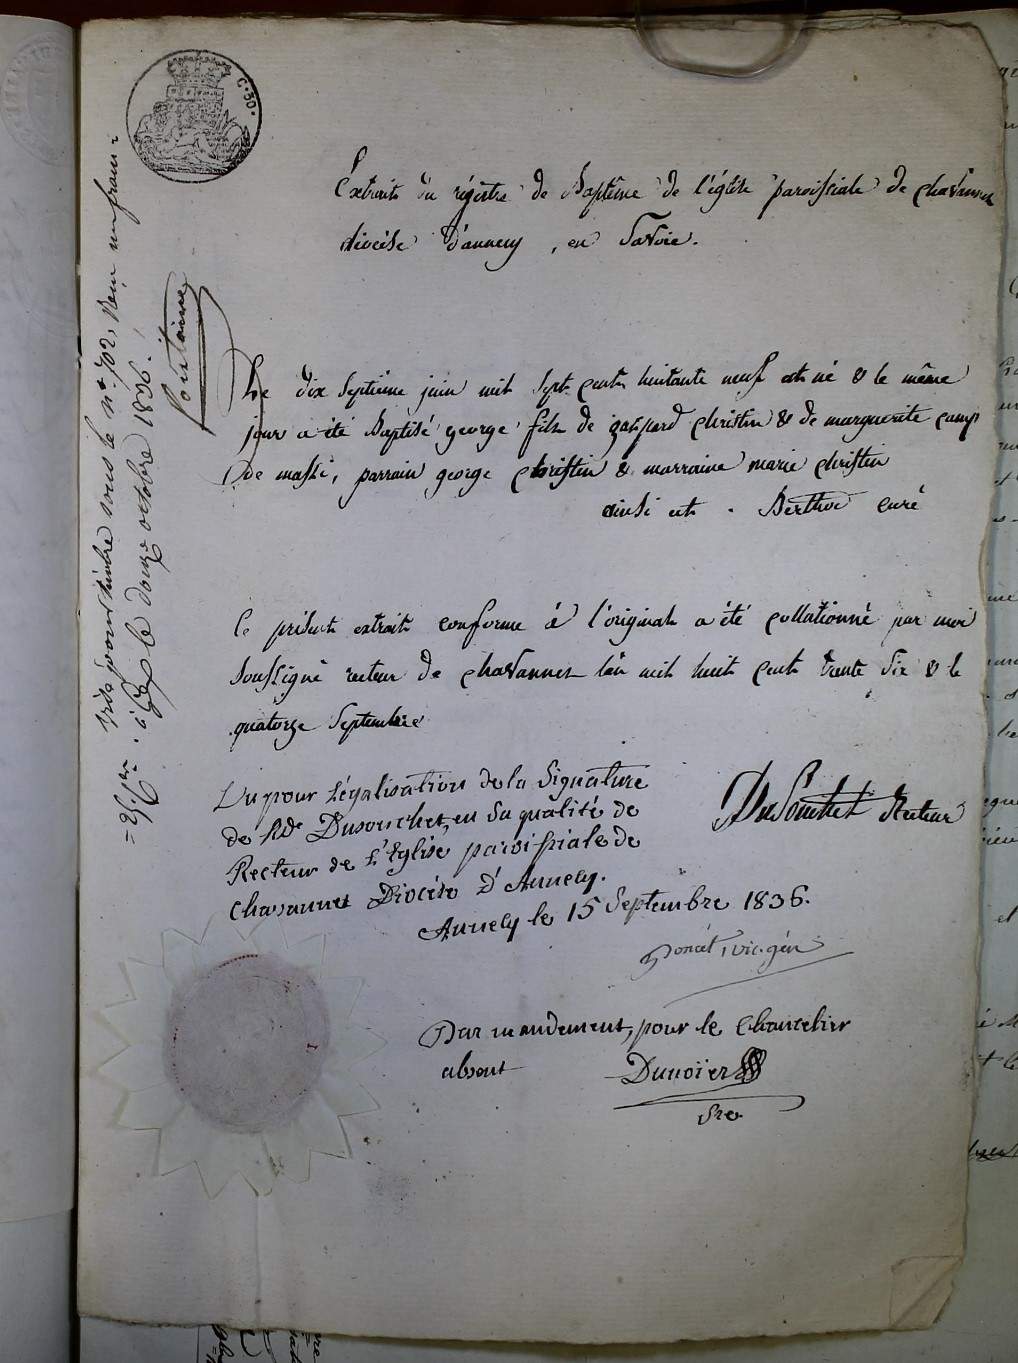 C. 30.
Extrait du régistre de Baptême de l'église paroissiale de chavannes
diocèse d'annecy, en Savoie.
Le dix septième juin mil sept cent huitante neuf est né & le même
jour a été Baptisé george fils de gaspard christin & de marguerite
de massi, parrain george christin & marraine marie christin
ainsi est. Berthod curé
le présent extrait conforme à l'original a été collationné par moi
soussigné recteur de chavannes l'an mil huit cent trente six & le
quatorze Septembre
DuSouchet Recteur
Vu pour Légalisation de la Signature
de Rde Dusouchet, en sa qualité de
Recteur de l'Eglise paroissiale de
Chavannes Diocèse d'Annecy.
Annecy le 15 Septembre 1836.
Poncet, vic. gén.
Par mandement, pour le Chancelier
absent
Dunoïer
Sre
Visé pour timbre sous le n° 702,
à le douze octobre 1836.